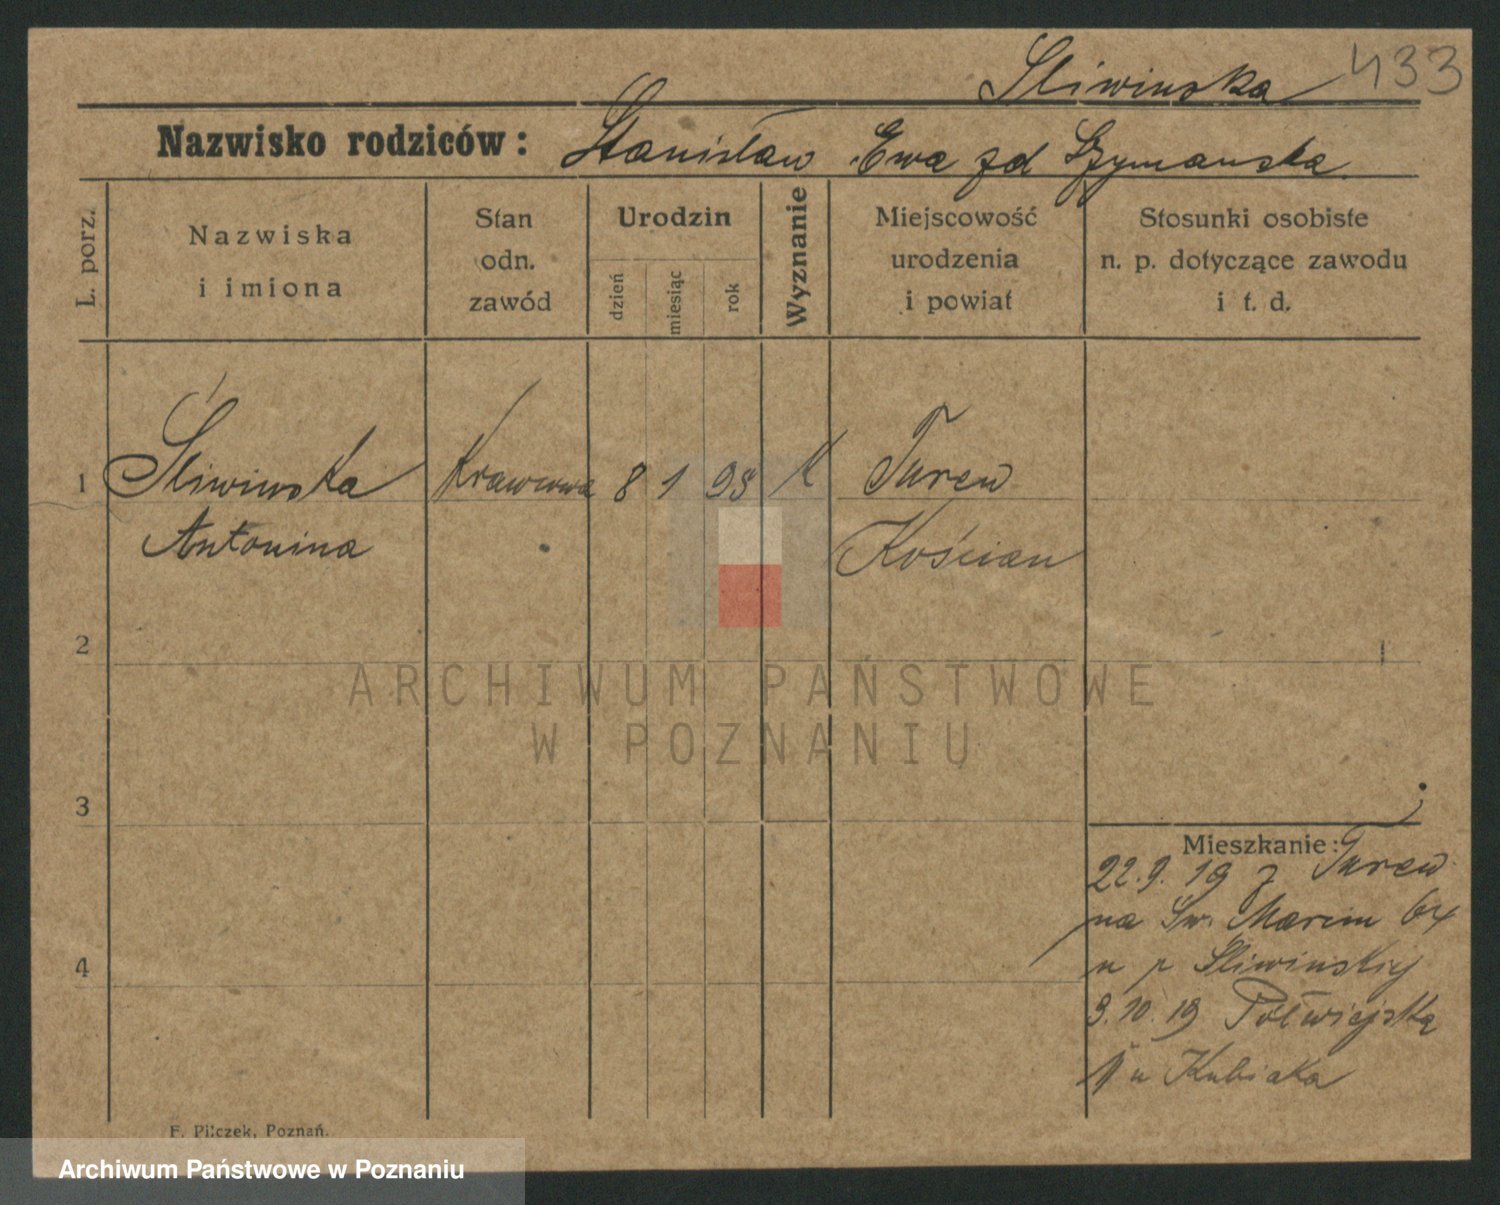 Śliwinska 433
Nazwisko rodziców: Stanisław Ewa zd Szymanska.
L. porz.
Nazwiska
i imiona
Stan
odn.
zawód
Urodzin
dzień
miesiąc
rok
Wyznanie
Miejscowość
urodzenia
i powiat
Stosunki osobiste
n. p. dotyczące zawodu
i t. d.
1 Śliwinska Krawcowa 8 1 95 K Turew
Antonina Kościan
2
ARCHIWUM PAŃSTWOWE
W POZNANIU
3
Mieszkanie:
22.9.19 z Turew
na Św. Marcin 64
u p Śliwinskiej
4
9.10.19 Półwiejska
u Kubiaka
F. Pilczek, Poznań.
Archiwum Państwowe w Poznaniu